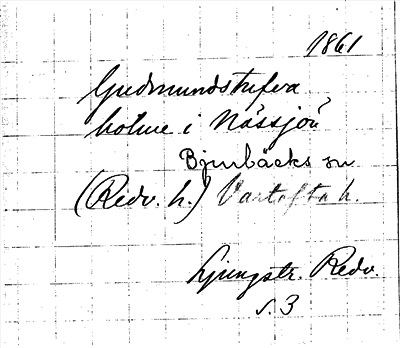 1861
Gudmundstufva
holme i Nässjön
Bjurbäcks sn
(Redv. h.) Vartofta h.
Ljungstr. Redv.
s. 3